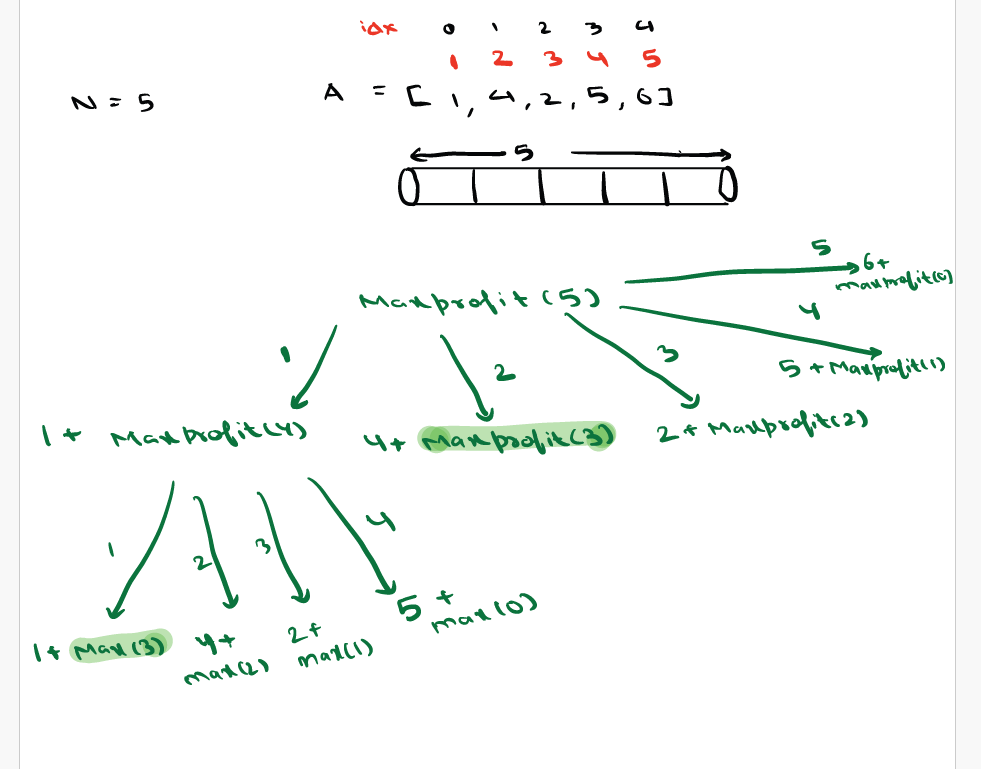 idx 0 1 2 3 4
1 2 3 4 5
N = 5 A = [ 1, 4, 2, 5, 6]
5
5
6+
maxprofit(0)
Maxprofit (5)
4
1 2 3
5 + Maxprofit(1)
1 + Maxprofit(4) 4+ Maxprofit(3) 2 + Maxprofit(2)
1 2 3 4
1+ Max(3) 4+ max(2) 2+ max(1) 5 + max(0)